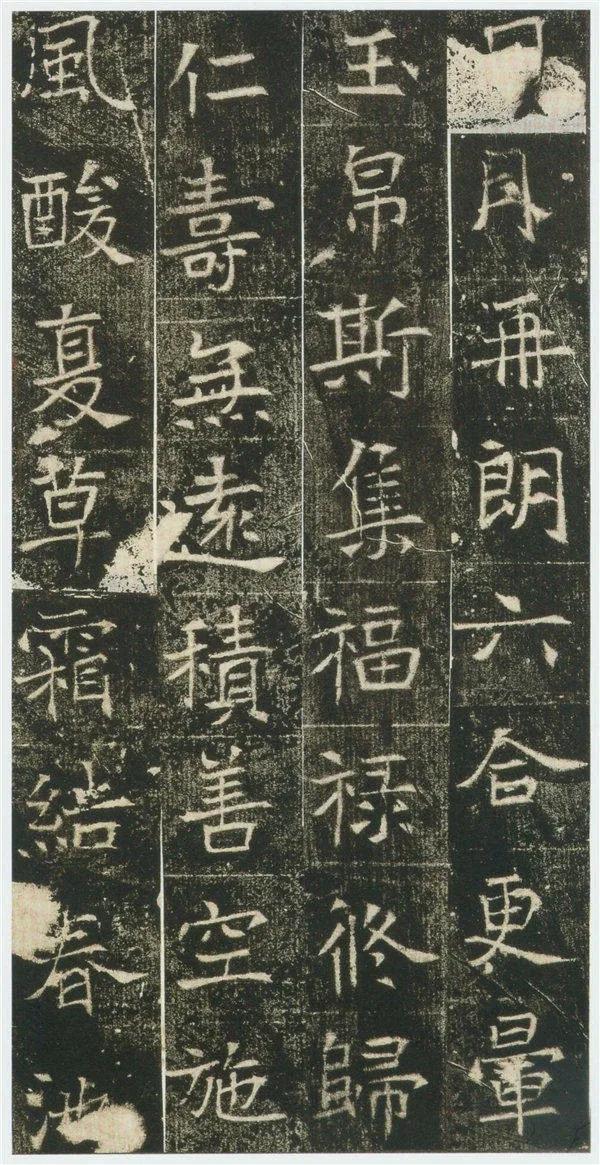 月再朗六合更暈
玉帛斯集福禄歸
仁壽無遠積善空施
風酸夏草霜結春池